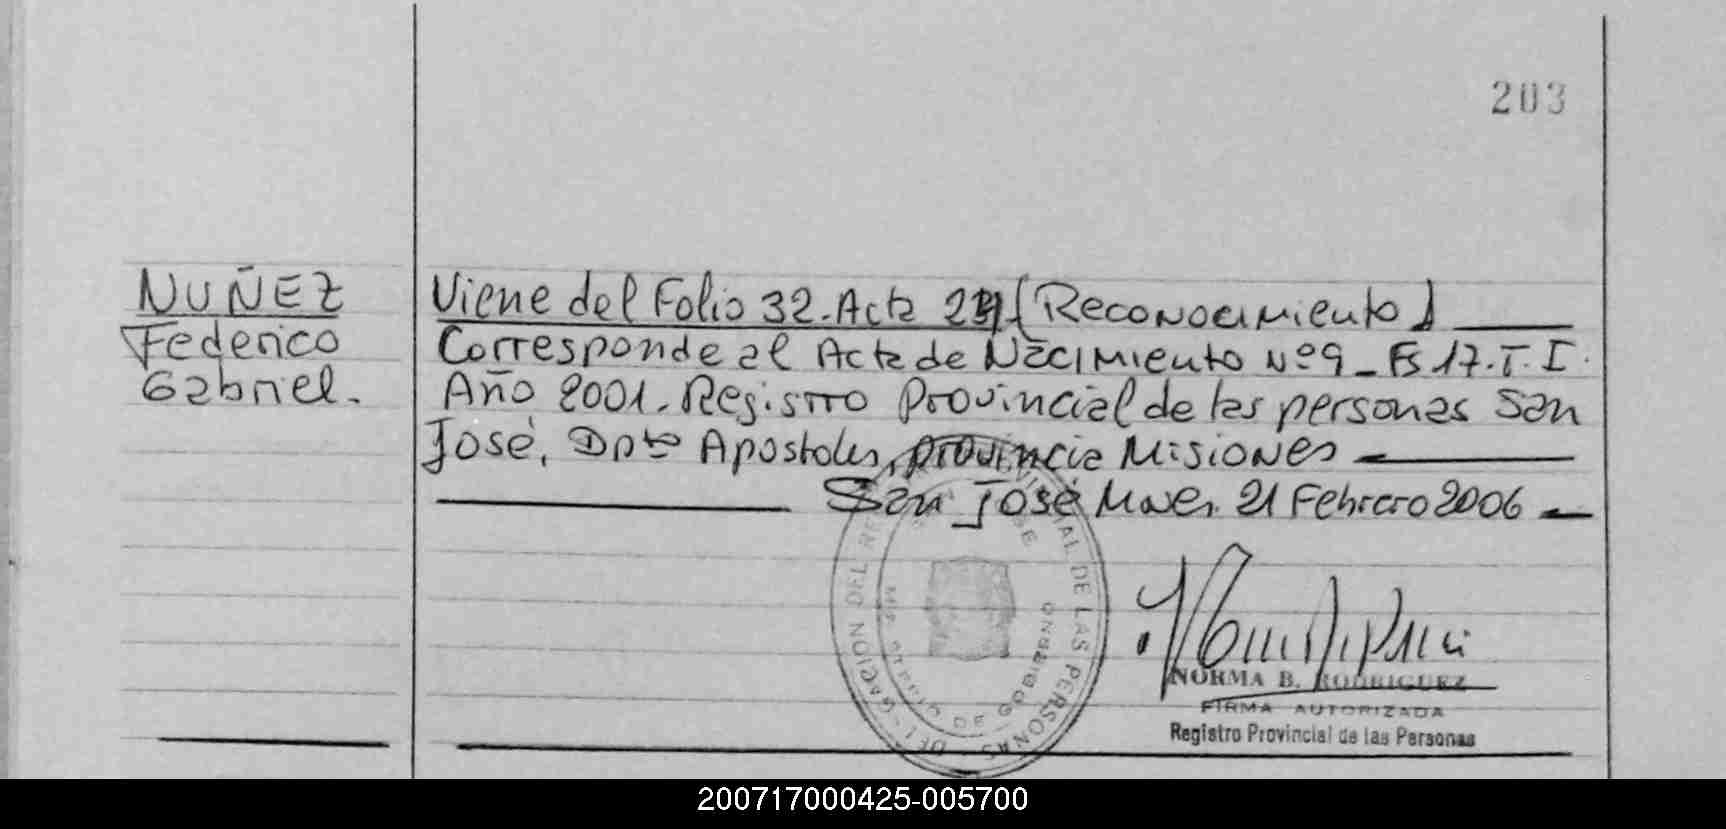 203
NUÑEZ
Federico
Gabriel.
Viene del Folio 32. Acta (Reconocimiento)
Corresponde al Acta de Nacimiento Nº 9 _ Fs 17. T. I.
Año 2001. Registro Provincial de las personas San
José, Dpto Apostoles, provincia Misiones
San José Mnes. 21 Febrero 2006
DELEGACION DEL REGISTRO PROVINCIAL DE LAS PERSONAS
MINISTERIO DE GOBIERNO
NORMA B. RODRIGUEZ
FIRMA AUTORIZADA
Registro Provincial de las Personas
200717000425-005700